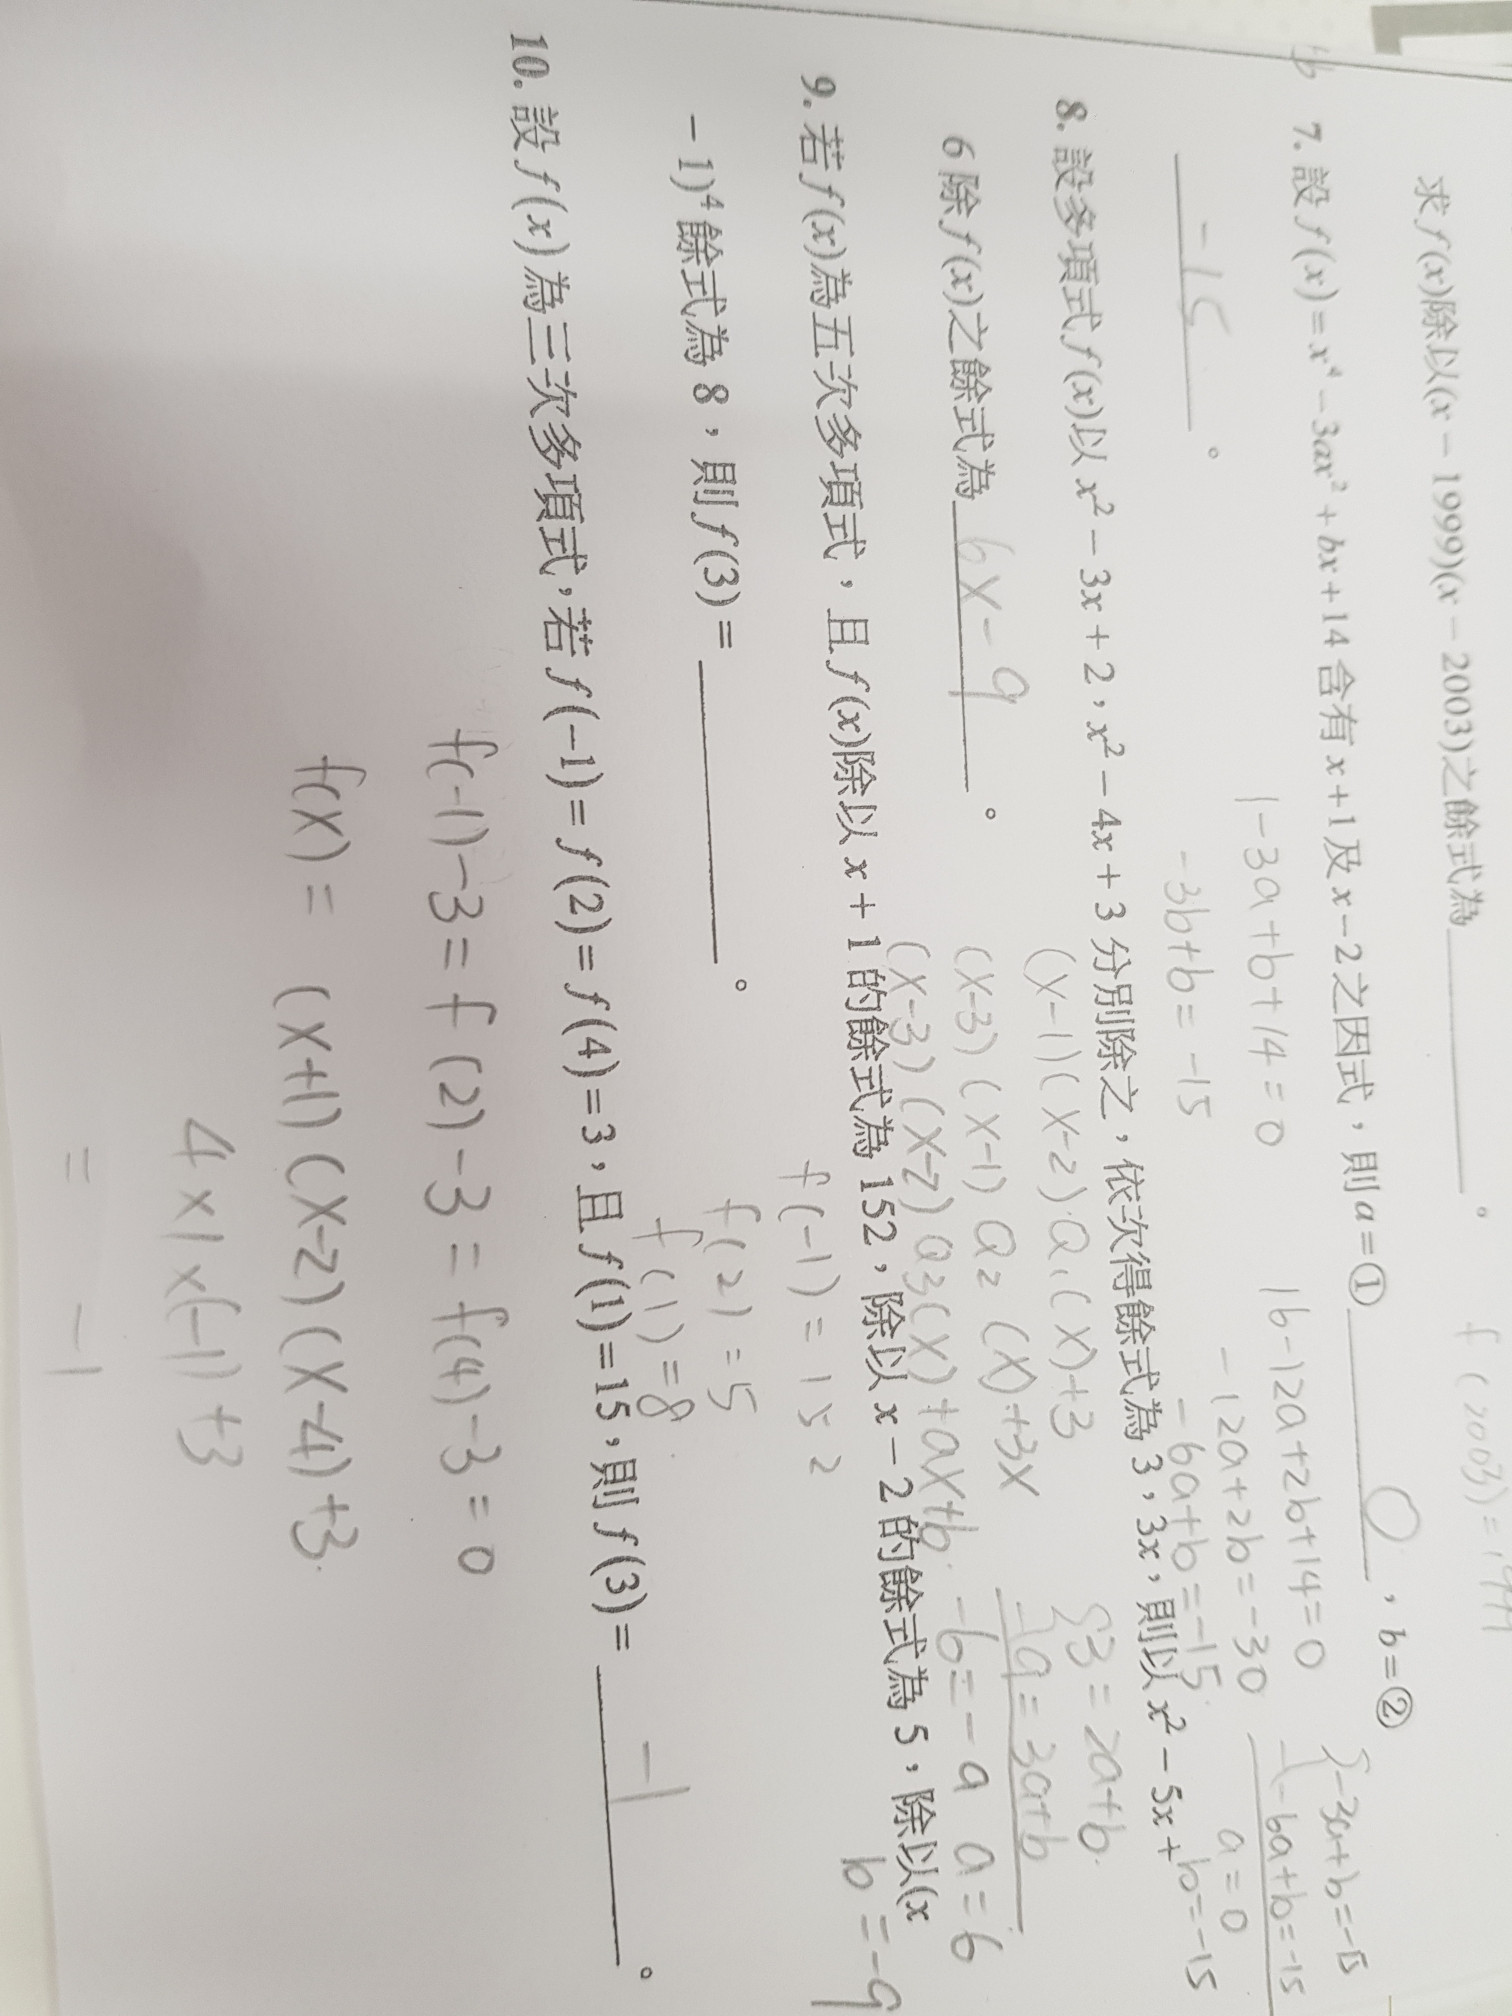 求f(x)除以(x－1999)(x－2003)之餘式為＿＿＿＿。
f(2003)=1999
7. 設f(x)=x⁴－3ax²+bx+14含有x+1及x－2之因式，則a=① 0 ，b=②
－15 。
1-3a+b+14=0
-3b+b=-15
16-12a+2b+14=0
-12a+2b=-30
-6a+b=-15.
{-3a+b=-15
-)-6a+b=-15
a=0
b=-15
8. 設多項式f(x)以x²－3x+2，x²－4x+3分別除之，依次得餘式為3，3x，則以x²－5x+
6除f(x)之餘式為 6x-9 。
(x-1)(x-2)Q₁(x)+3
(x-3)(x-1)Q₂(x)+3x
(x-3)(x-2)Q3(x)+ax+b.
{3=2a+b.
-)9=3a+b
-6=-a a=6
b=-9
9. 若f(x)為五次多項式，且f(x)除以x+1的餘式為152，除以x－2的餘式為5，除以(x
－1)⁴餘式為8，則f(3)=＿＿＿＿。
f(-1)=152
f(2)=5
f(1)=8
10. 設f(x)為三次多項式，若f(－1)=f(2)=f(4)=3，且f(1)=15，則f(3)= -1 。
f(-1)-3=f(2)-3=f(4)-3=0
f(x)= (x+1)(x-2)(x-4)+3.
4×1×(-1)+3
= -1